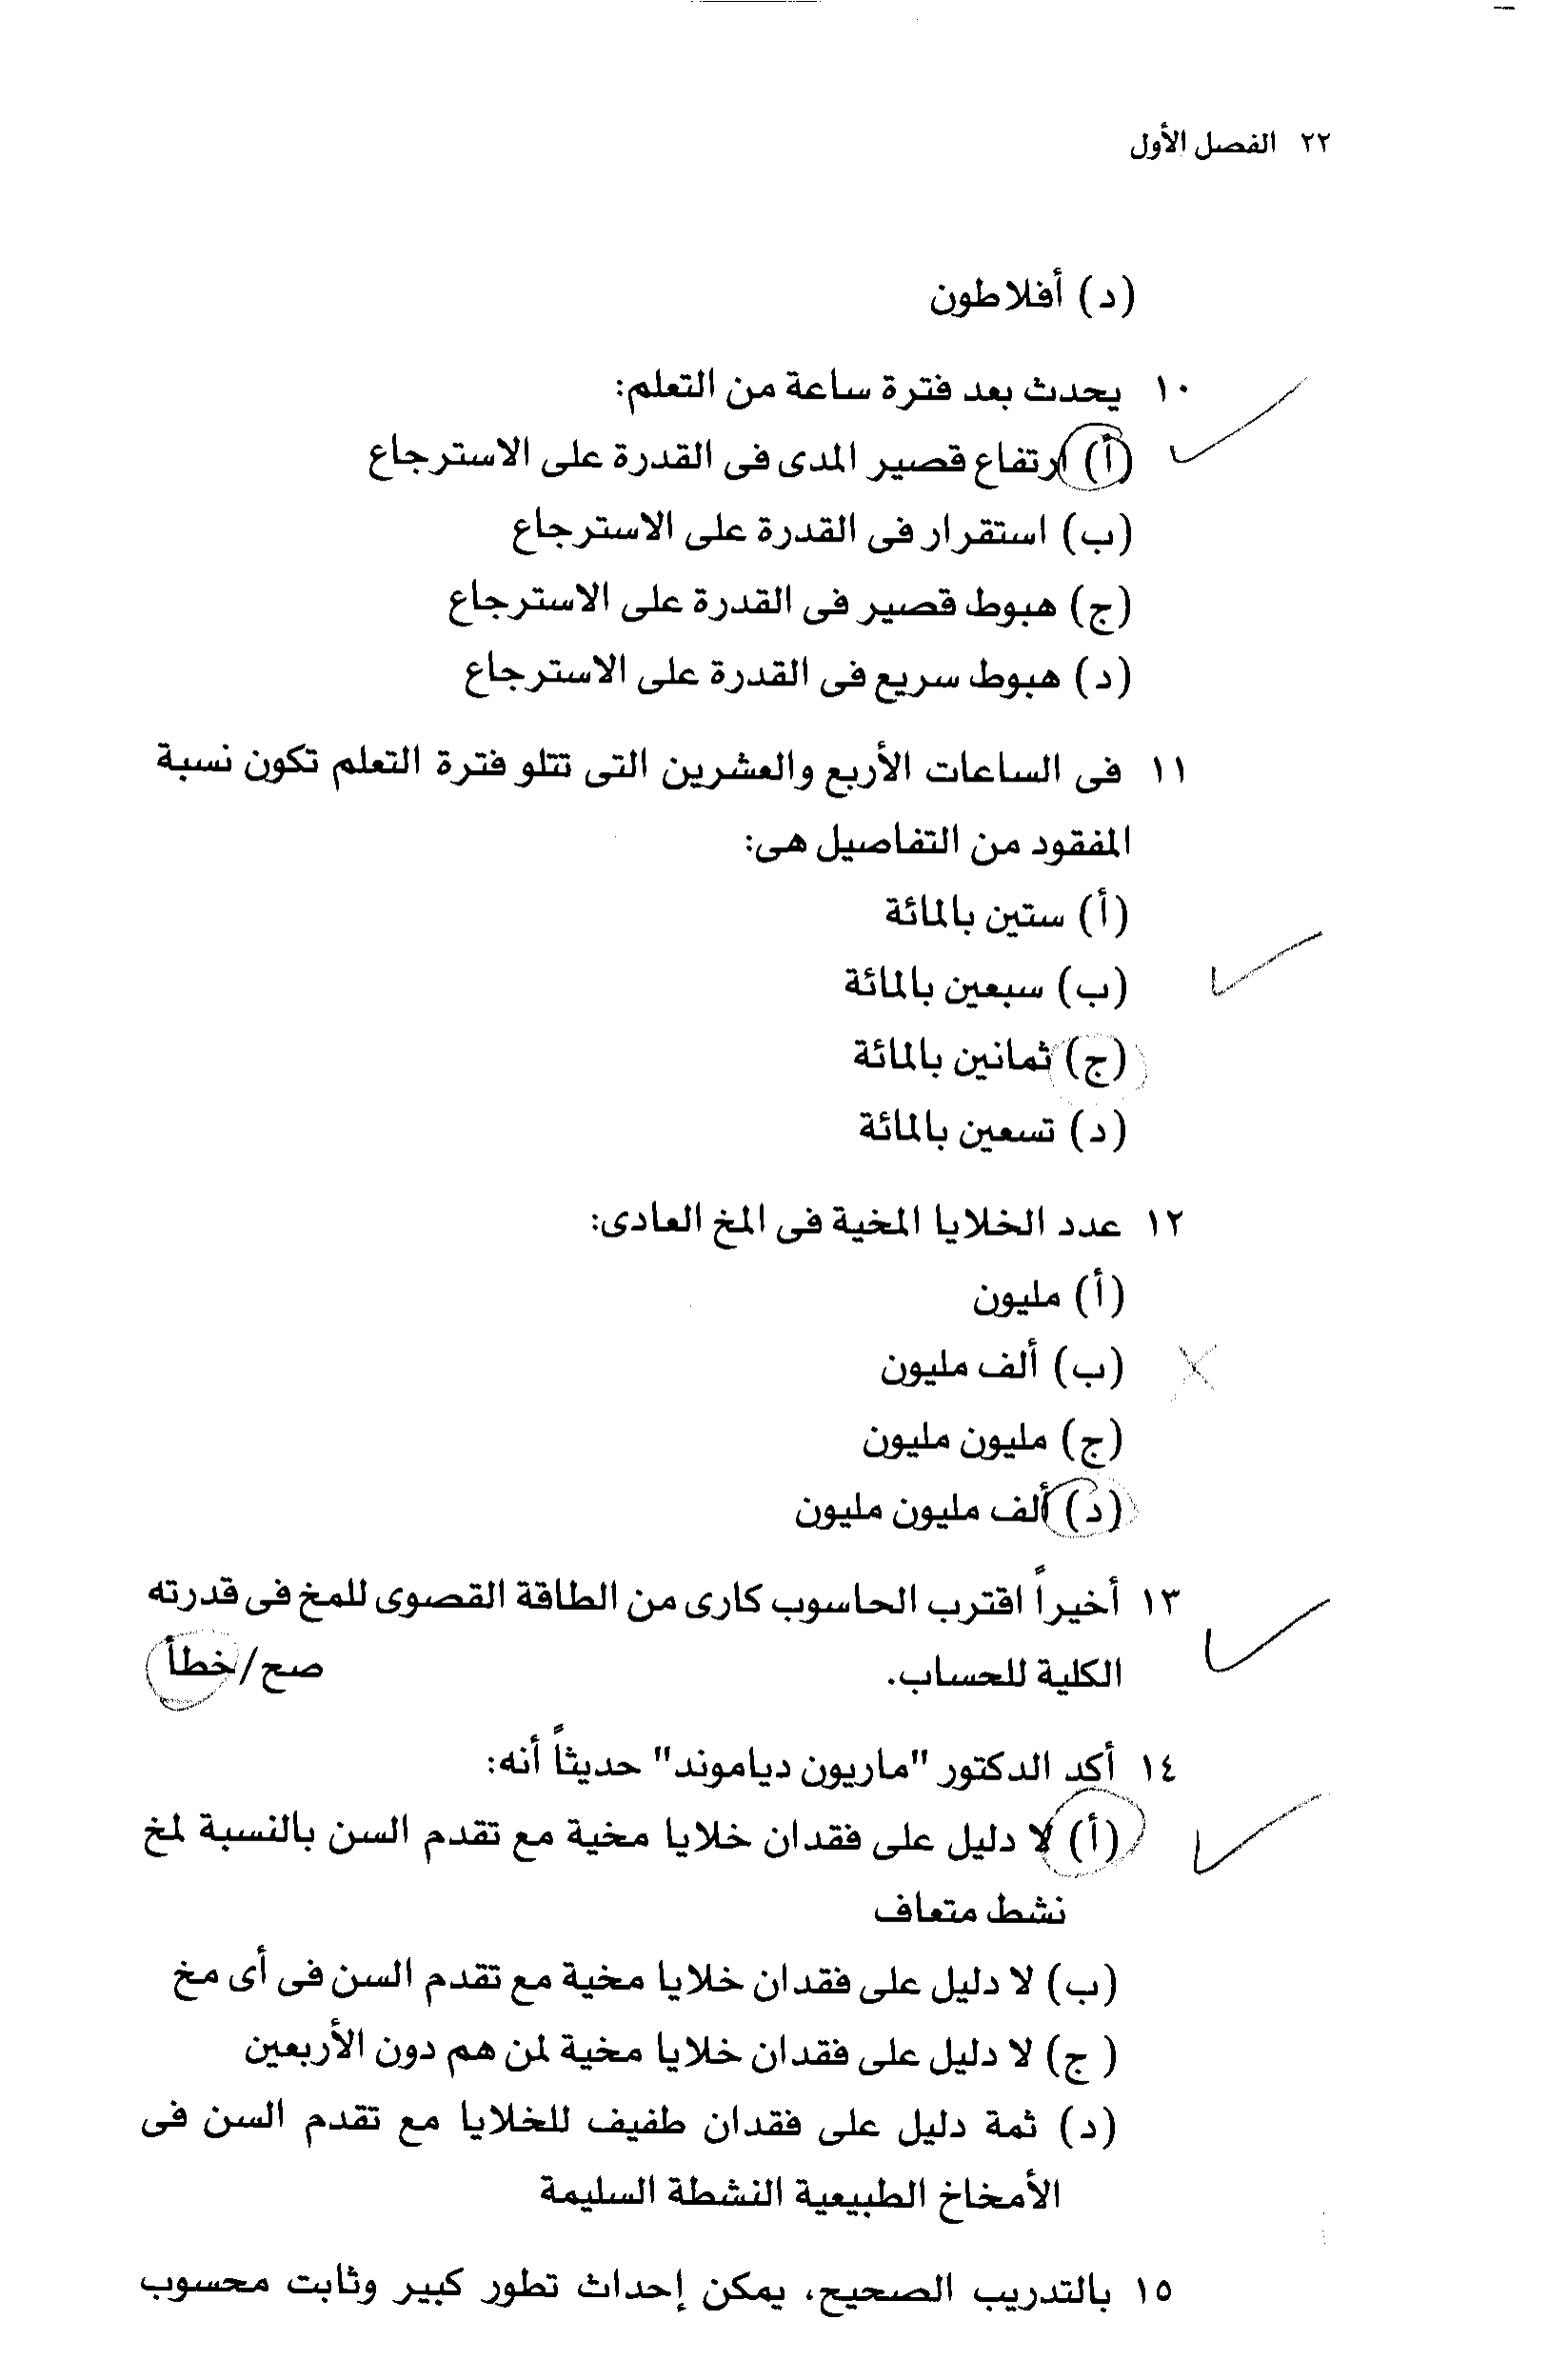 ٢٢ الفصل الأول
(د) أفلاطون
١٠ يحدث بعد فترة ساعة من التعلم:
(أ) ارتفاع قصير المدى فى القدرة على الاسترجاع
(ب) استقرار فى القدرة على الاسترجاع
(ج) هبوط قصير فى القدرة على الاسترجاع
(د) هبوط سريع فى القدرة على الاسترجاع
١١ فى الساعات الأربع والعشرين التى تتلو فترة التعلم تكون نسبة
المفقود من التفاصيل هى:
(أ) ستين بالمائة
(ب) سبعين بالمائة
(ج) ثمانين بالمائة
(د) تسعين بالمائة
١٢ عدد الخلايا المخية فى المخ العادى:
(أ) مليون
(ب) ألف مليون
(ج) مليون مليون
(د) ألف مليون مليون
١٣ أخيراً اقترب الحاسوب كارى من الطاقة القصوى للمخ فى قدرته
الكلية للحساب. صح/خطأ
١٤ أكد الدكتور "ماريون دياموند" حديثاً أنه:
(أ) لا دليل على فقدان خلايا مخية مع تقدم السن بالنسبة لمخ
نشط متعاف
(ب) لا دليل على فقدان خلايا مخية مع تقدم السن فى أى مخ
( ج) لا دليل على فقدان خلايا مخية لمن هم دون الأربعين
(د) ثمة دليل على فقدان طفيف للخلايا مع تقدم السن فى
الأمخاخ الطبيعية النشطة السليمة
١٥ بالتدريب الصحيح، يمكن إحداث تطور كبير وثابت محسوب